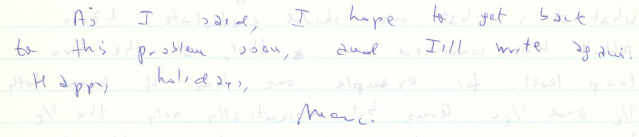 As I said, I hope to get back
to this problem soon, and I'll write again.
Happy holidays,
Marc.